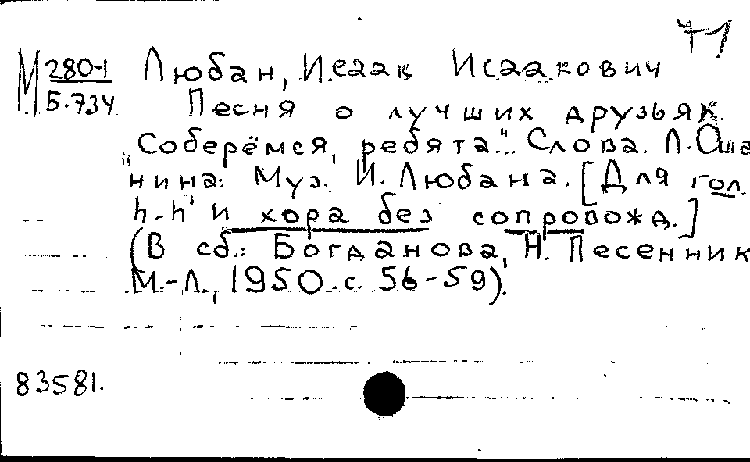 71
М 280-1 Любан, Исаак Исаакович
5.734 Песня о лучших друзьях.
„Соберёмся, ребята". Слова. Л. Оша
нина. Муз. И. Любана. [Для гол.
h-h' и хора без сопровожд.]
(В сб.: Богданова, Н. Песенник
М.-Л., 1950. с. 56-59).
83581.